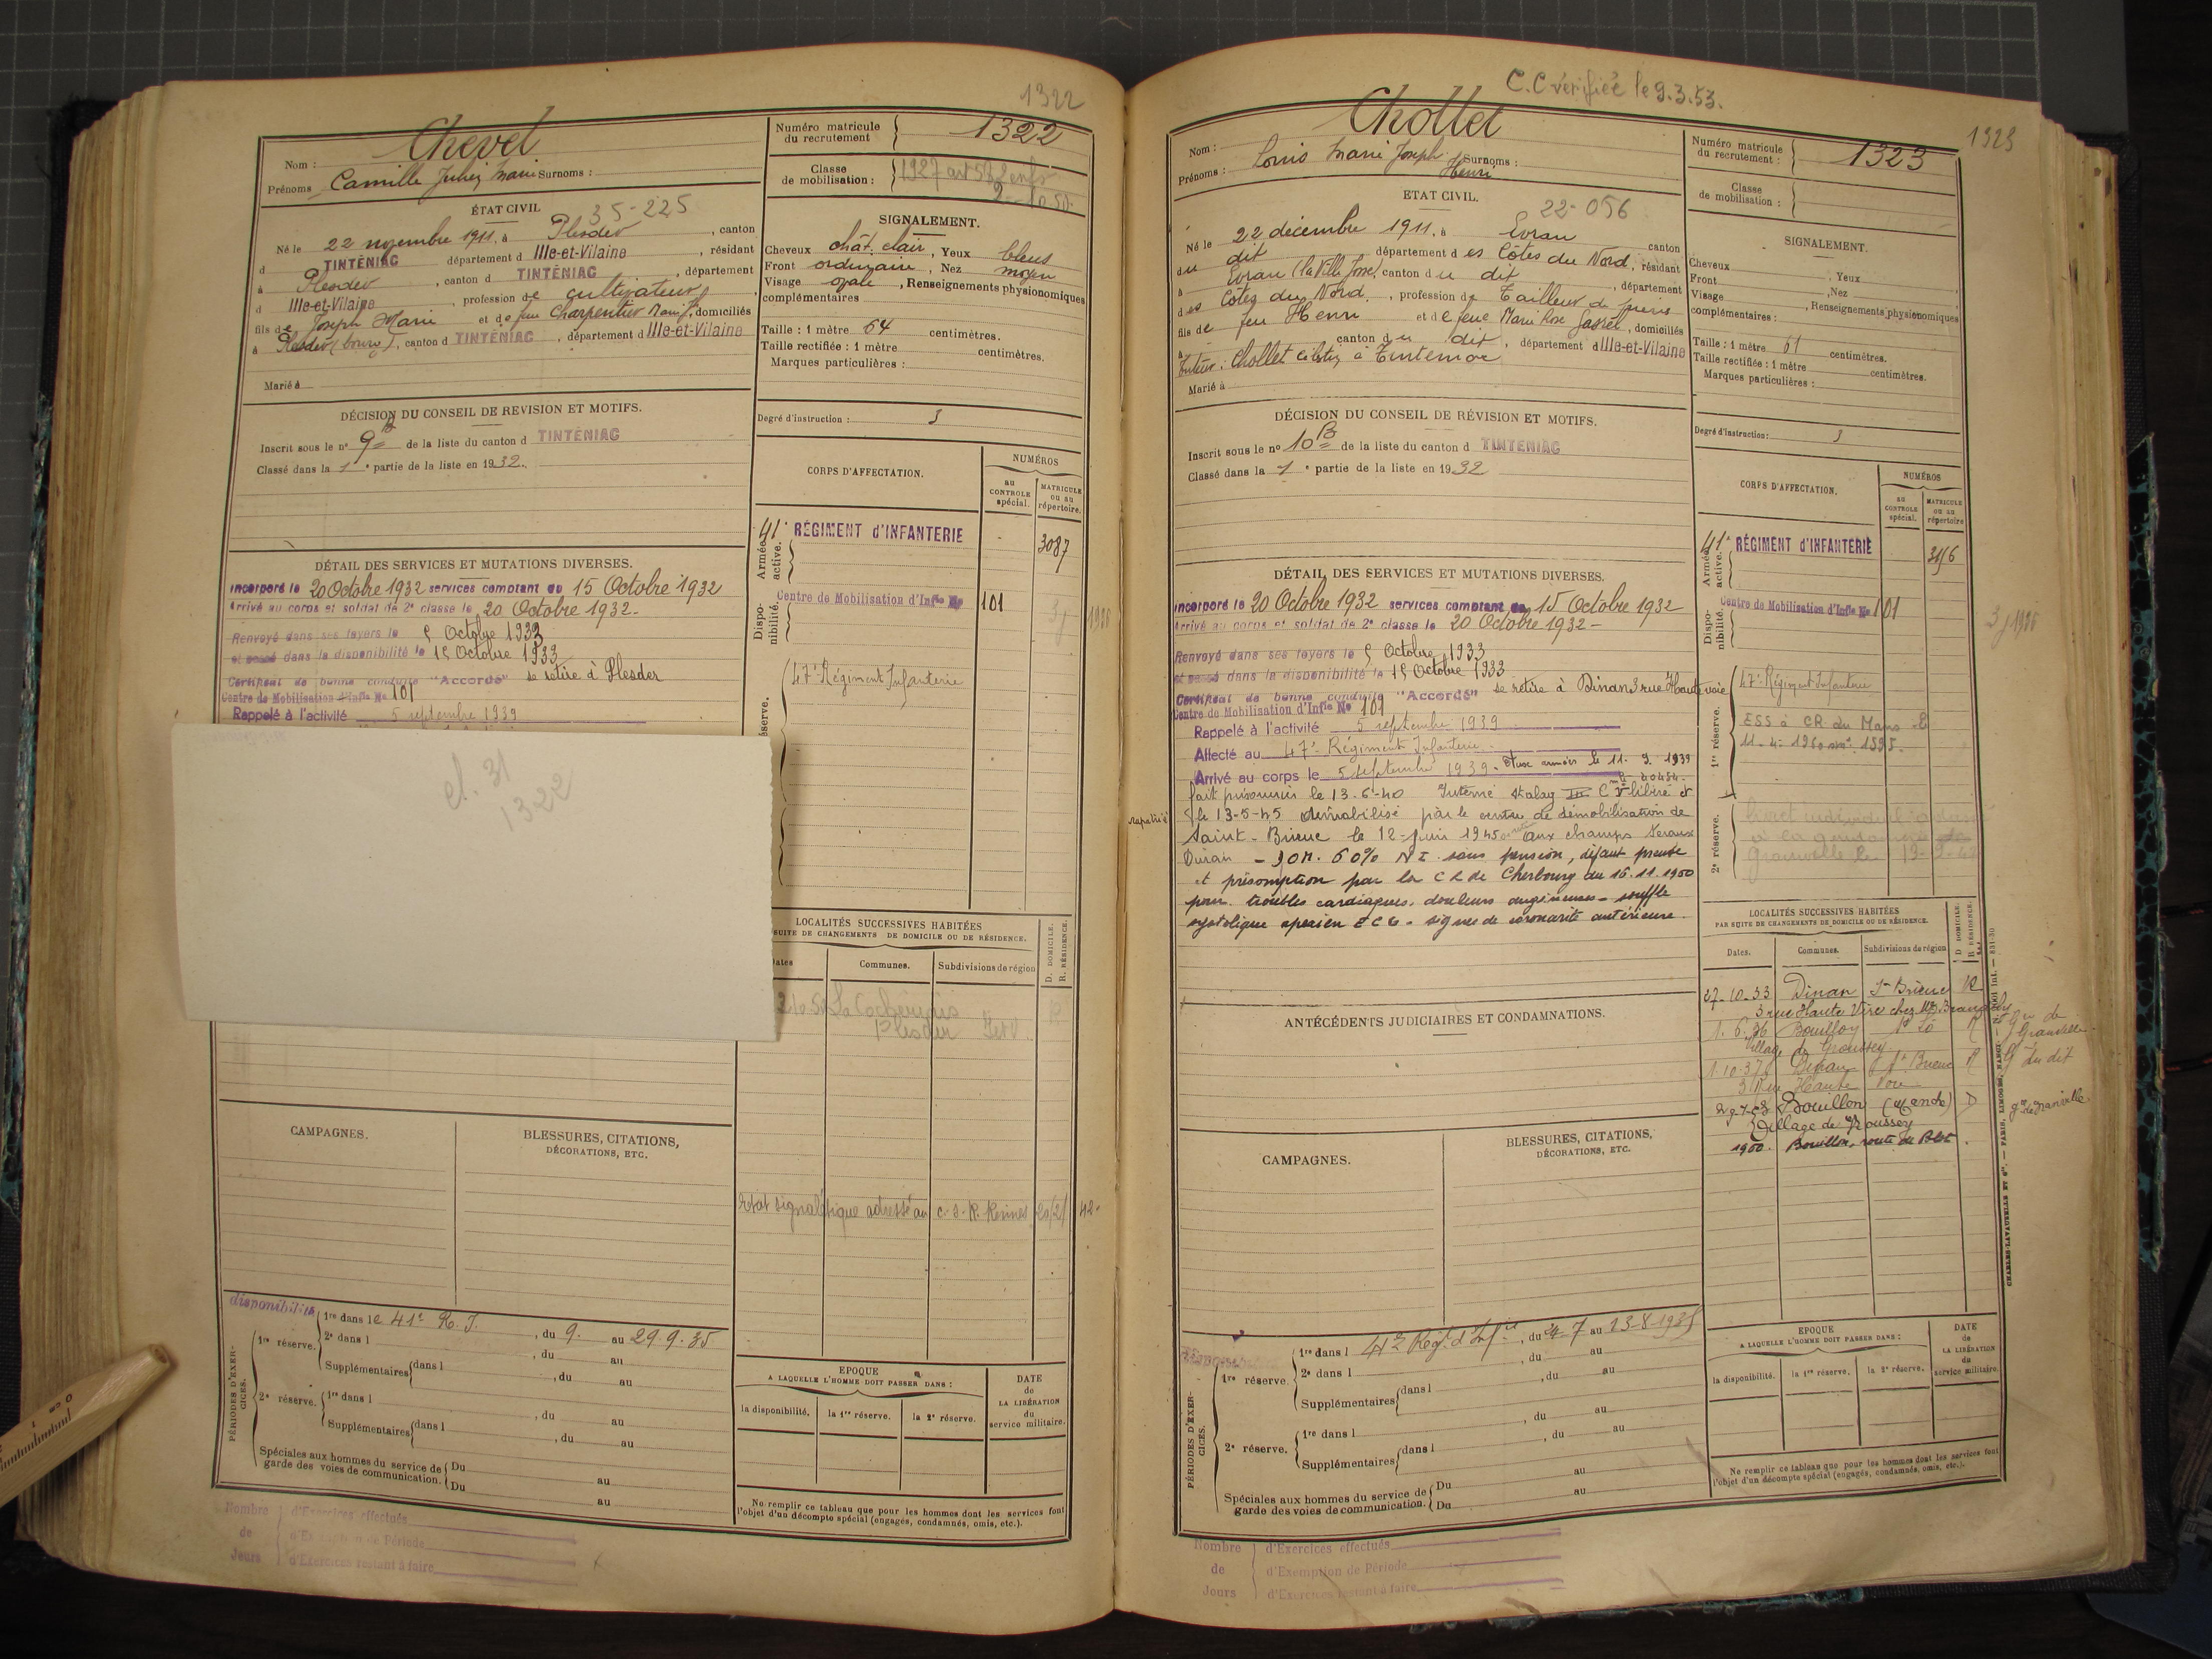 1322
Nom : Chevel
Prénoms Camille Julien Marie Surnoms :
Numéro matricule du recrutement 1322
Classe de mobilisation : 1927 art 58 2 enfs
2-10-50
ÉTAT CIVIL
35-225
Né le 22 novembre 1911, à Plesder, canton
d TINTÉNIAC département d Ille-et-Vilaine, résidant
à Plesder, canton d TINTÉNIAC, département
d Ille-et-Vilaine, profession de cultivateur
fils de Joseph Marie et de feu Charpentier, domiciliés
à Plesder (bourg), canton d TINTÉNIAC, département d Ille-et-Vilaine
Marié à
SIGNALEMENT.
Cheveux chât. clair, Yeux bleus
Front ordinaire, Nez moyen
Visage ovale, Renseignements physionomiques
complémentaires
Taille : 1 mètre 64 centimètres.
Taille rectifiée : 1 mètre centimètres.
Marques particulières :
Degré d'instruction : 3
DÉCISION DU CONSEIL DE REVISION ET MOTIFS.
Inscrit sous le n° 9 B de la liste du canton d TINTÉNIAC
Classé dans la 1e partie de la liste en 1932.
CORPS D'AFFECTATION.
NUMÉROS
au CONTROLE spécial.
MATRICULE ou au répertoire.
Armée active.
41e RÉGIMENT d'INFANTERIE
3087
Disponibilité.
Centre de Mobilisation d'Infie No 101
3 j 1936
réserve.
47e Régiment Infanterie
DÉTAIL DES SERVICES ET MUTATIONS DIVERSES.
Incorporé le 20 Octobre 1932 services comptant du 15 Octobre 1932
Arrivé au corps et soldat de 2e classe le 20 Octobre 1932-
Renvoyé dans ses foyers le 5 Octobre 1933
et passé dans la disponibilité le 15 Octobre 1933
Certificat de bonne conduite "Accordé" se retire à Plesder
Centre de Mobilisation d'Infie No 101
Rappelé à l'activité 5 septembre 1939
cl. 31
1322
LOCALITÉS SUCCESSIVES HABITÉES
SUITE DE CHANGEMENTS DE DOMICILE OU DE RÉSIDENCE.
Dates
Communes.
Subdivisions de région
D. DOMICILE.
R. RÉSIDENCE.
2.10.50 La Cochenais
Plesder I et V
R
CAMPAGNES.
BLESSURES, CITATIONS,
DÉCORATIONS, ETC.
Etat signalétique adressé au c.s.R. Rennes 20/2/42-
disponibilité
PÉRIODES D'EXERCICES.
1re réserve.
1re dans le 41e R.I., du 9. au 29.9.35
2e dans l, du au
Supplémentaires dans l, du au
2e réserve.
1re dans l
Supplémentaires dans l, du au
Spéciales aux hommes du service de garde des voies de communication.
Du au
Du au
EPOQUE
A LAQUELLE L'HOMME DOIT PASSER DANS :
la disponibilité.
la 1re réserve.
la 2e réserve.
DATE de LA LIBÉRATION du service militaire.
Ne remplir ce tableau que pour les hommes dont les services font
l'objet d'un décompte spécial (engagés, condamnés, omis, etc.).
Nombre de Jours
d'Exercices effectués
d'Exemption de Période
d'Exercices restant à faire
C.C vérifiée le 9.3.53.
1323
Nom : Chollet
Prénoms : Louis Marie Joseph Henri Surnoms :
Numéro matricule du recrutement : 1323
Classe de mobilisation :
ETAT CIVIL.
22-056
Né le 22 décembre 1911, à Evran canton
du dit département des Côtes du Nord, résidant
à Evran (la Ville Josse) canton du dit, département
des Côtes du Nord, profession de Tailleur de pierres
fils de feu Henri et de feue Marie Rose, domiciliés
à canton du dit, département d Ille-et-Vilaine
Tuteur : Chollet à Tinténiac
Marié à
SIGNALEMENT.
Cheveux, Yeux
Front, Nez
Visage, Renseignements physionomiques
complémentaires :
Taille : 1 mètre 61 centimètres.
Taille rectifiée : 1 mètre centimètres.
Marques particulières :
Degré d'instruction : 3
DÉCISION DU CONSEIL DE RÉVISION ET MOTIFS.
Inscrit sous le no 10 B de la liste du canton d TINTÉNIAC
Classé dans la 1e partie de la liste en 1932
CORPS D'AFFECTATION.
NUMÉROS
au CONTROLE spécial.
MATRICULE ou au répertoire
Armée active.
41e RÉGIMENT d'INFANTERIE
Disponibilité.
Centre de Mobilisation d'Infie No 101
3 j 1936
1re réserve.
47e Régiment Infanterie
ESS à CR du Mans
11-4-1950
2e réserve.
DÉTAIL DES SERVICES ET MUTATIONS DIVERSES.
Incorporé le 20 Octobre 1932 services comptant du 15 Octobre 1932
Arrivé au corps et soldat de 2e classe le 20 Octobre 1932-
Renvoyé dans ses foyers le 5 Octobre 1933
et passé dans la disponibilité le 15 Octobre 1933
Certificat de bonne conduite "Accordé" se retire à Dinan 3 rue Haute voie
Centre de Mobilisation d'Infie No 101
Rappelé à l'activité 5 septembre 1939
Affecté au 47e Régiment Infanterie
Arrivé au corps le 5 septembre 1939- aux armées le 11.9.1939
fait prisonnier le 13-6-40 Interné stalag III C libéré et
rapatrié le 13-5-45 démobilisé par le centre de démobilisation de
Saint-Brieuc le 12 juin 1945 aux champs
Dinan - 60% NI. sans pension, défaut preuve
et présomption par la CR de Cherbourg du 16.11.1950
pour troubles cardiaques. douleurs angineuses - souffle
systolique apexien ECG - signes de coronarite antérieure
LOCALITÉS SUCCESSIVES HABITÉES
PAR SUITE DE CHANGEMENTS DE DOMICILE OU DE RÉSIDENCE.
Dates.
Communes.
Subdivisions de région
D DOMICILE.
R RÉSIDENCE.
27-10-33 Dinan St-Brieuc R
3 rue Haute Voie chez
1.6.36 Bouillon St Lô R
Village de Groussey
Gie de Granville
1.10.37 Dinan St Brieuc R
3 Rue Haute Voie
G du dit
Bouillon (Manche) D
Village de Groussey
gie de Granville
1950. Bouillon, route du Blot.
ANTÉCÉDENTS JUDICIAIRES ET CONDAMNATIONS.
CAMPAGNES.
BLESSURES, CITATIONS,
DÉCORATIONS, ETC.
PÉRIODES D'EXERCICES.
1re réserve.
1re dans l 41e Regt d'Infie, du 24-7 au 13-8-1935
2e dans l, du au
Supplémentaires dans l, du au
2e réserve.
1re dans l, du au
Supplémentaires dans l, du au
Spéciales aux hommes du service de garde des voies de communication.
Du au
Du au
EPOQUE
A LAQUELLE L'HOMME DOIT PASSER DANS :
la disponibilité.
la 1re réserve.
la 2e réserve.
DATE de LA LIBÉRATION du service militaire.
Ne remplir ce tableau que pour les hommes dont les services font
l'objet d'un décompte spécial (engagés, condamnés, omis, etc.).
Nombre de Jours
d'Exercices effectués
d'Exemption de Période
d'Exercices restant à faire
CHARLES-LAVAUZELLE ET Cie. — PARIS, LIMOGES, NANCY